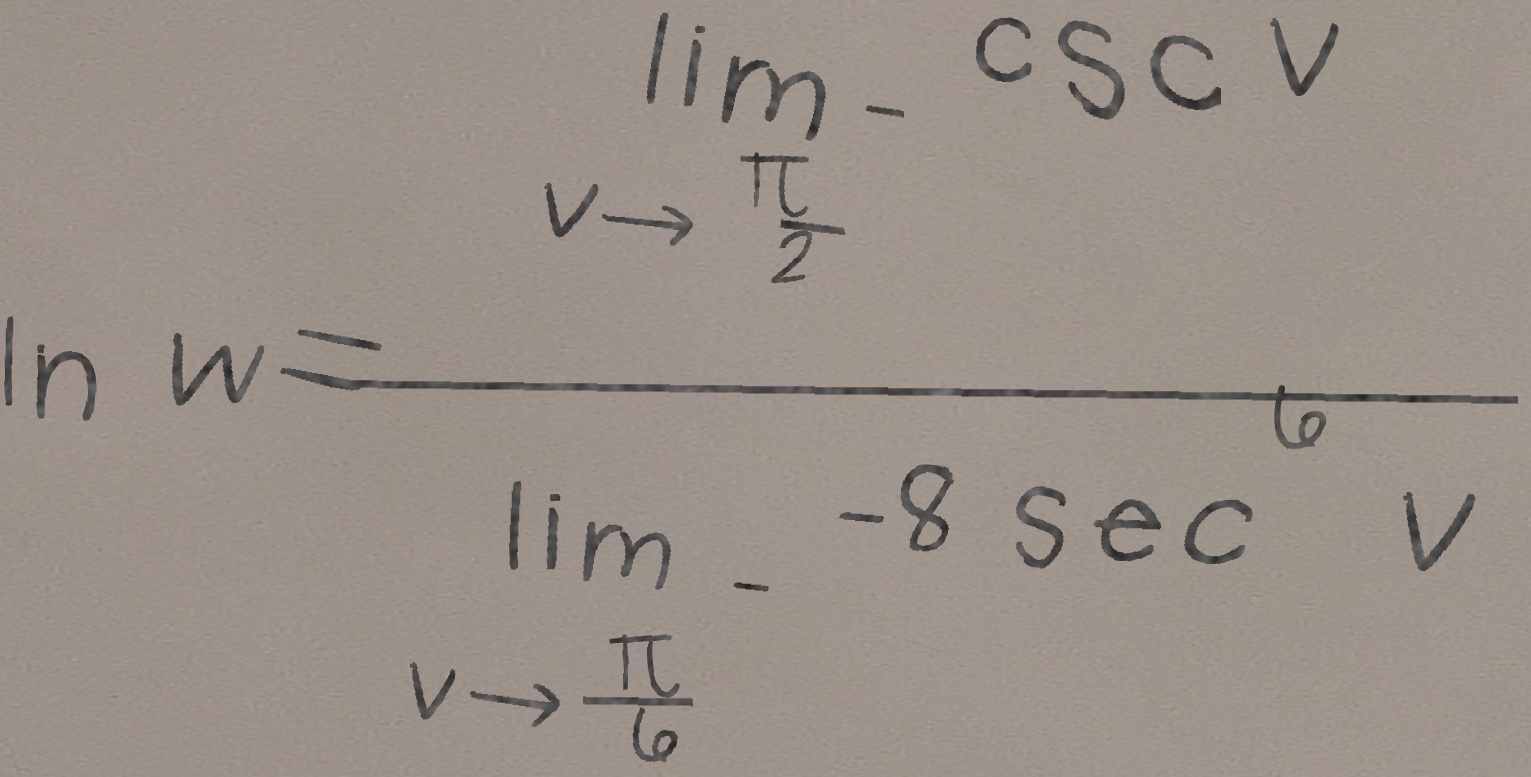 \ln w = \frac{\lim_{v \to \frac{\pi}{2}^-} \csc v}{\lim_{v \to \frac{\pi}{6}^-} -8 \sec^6 v}